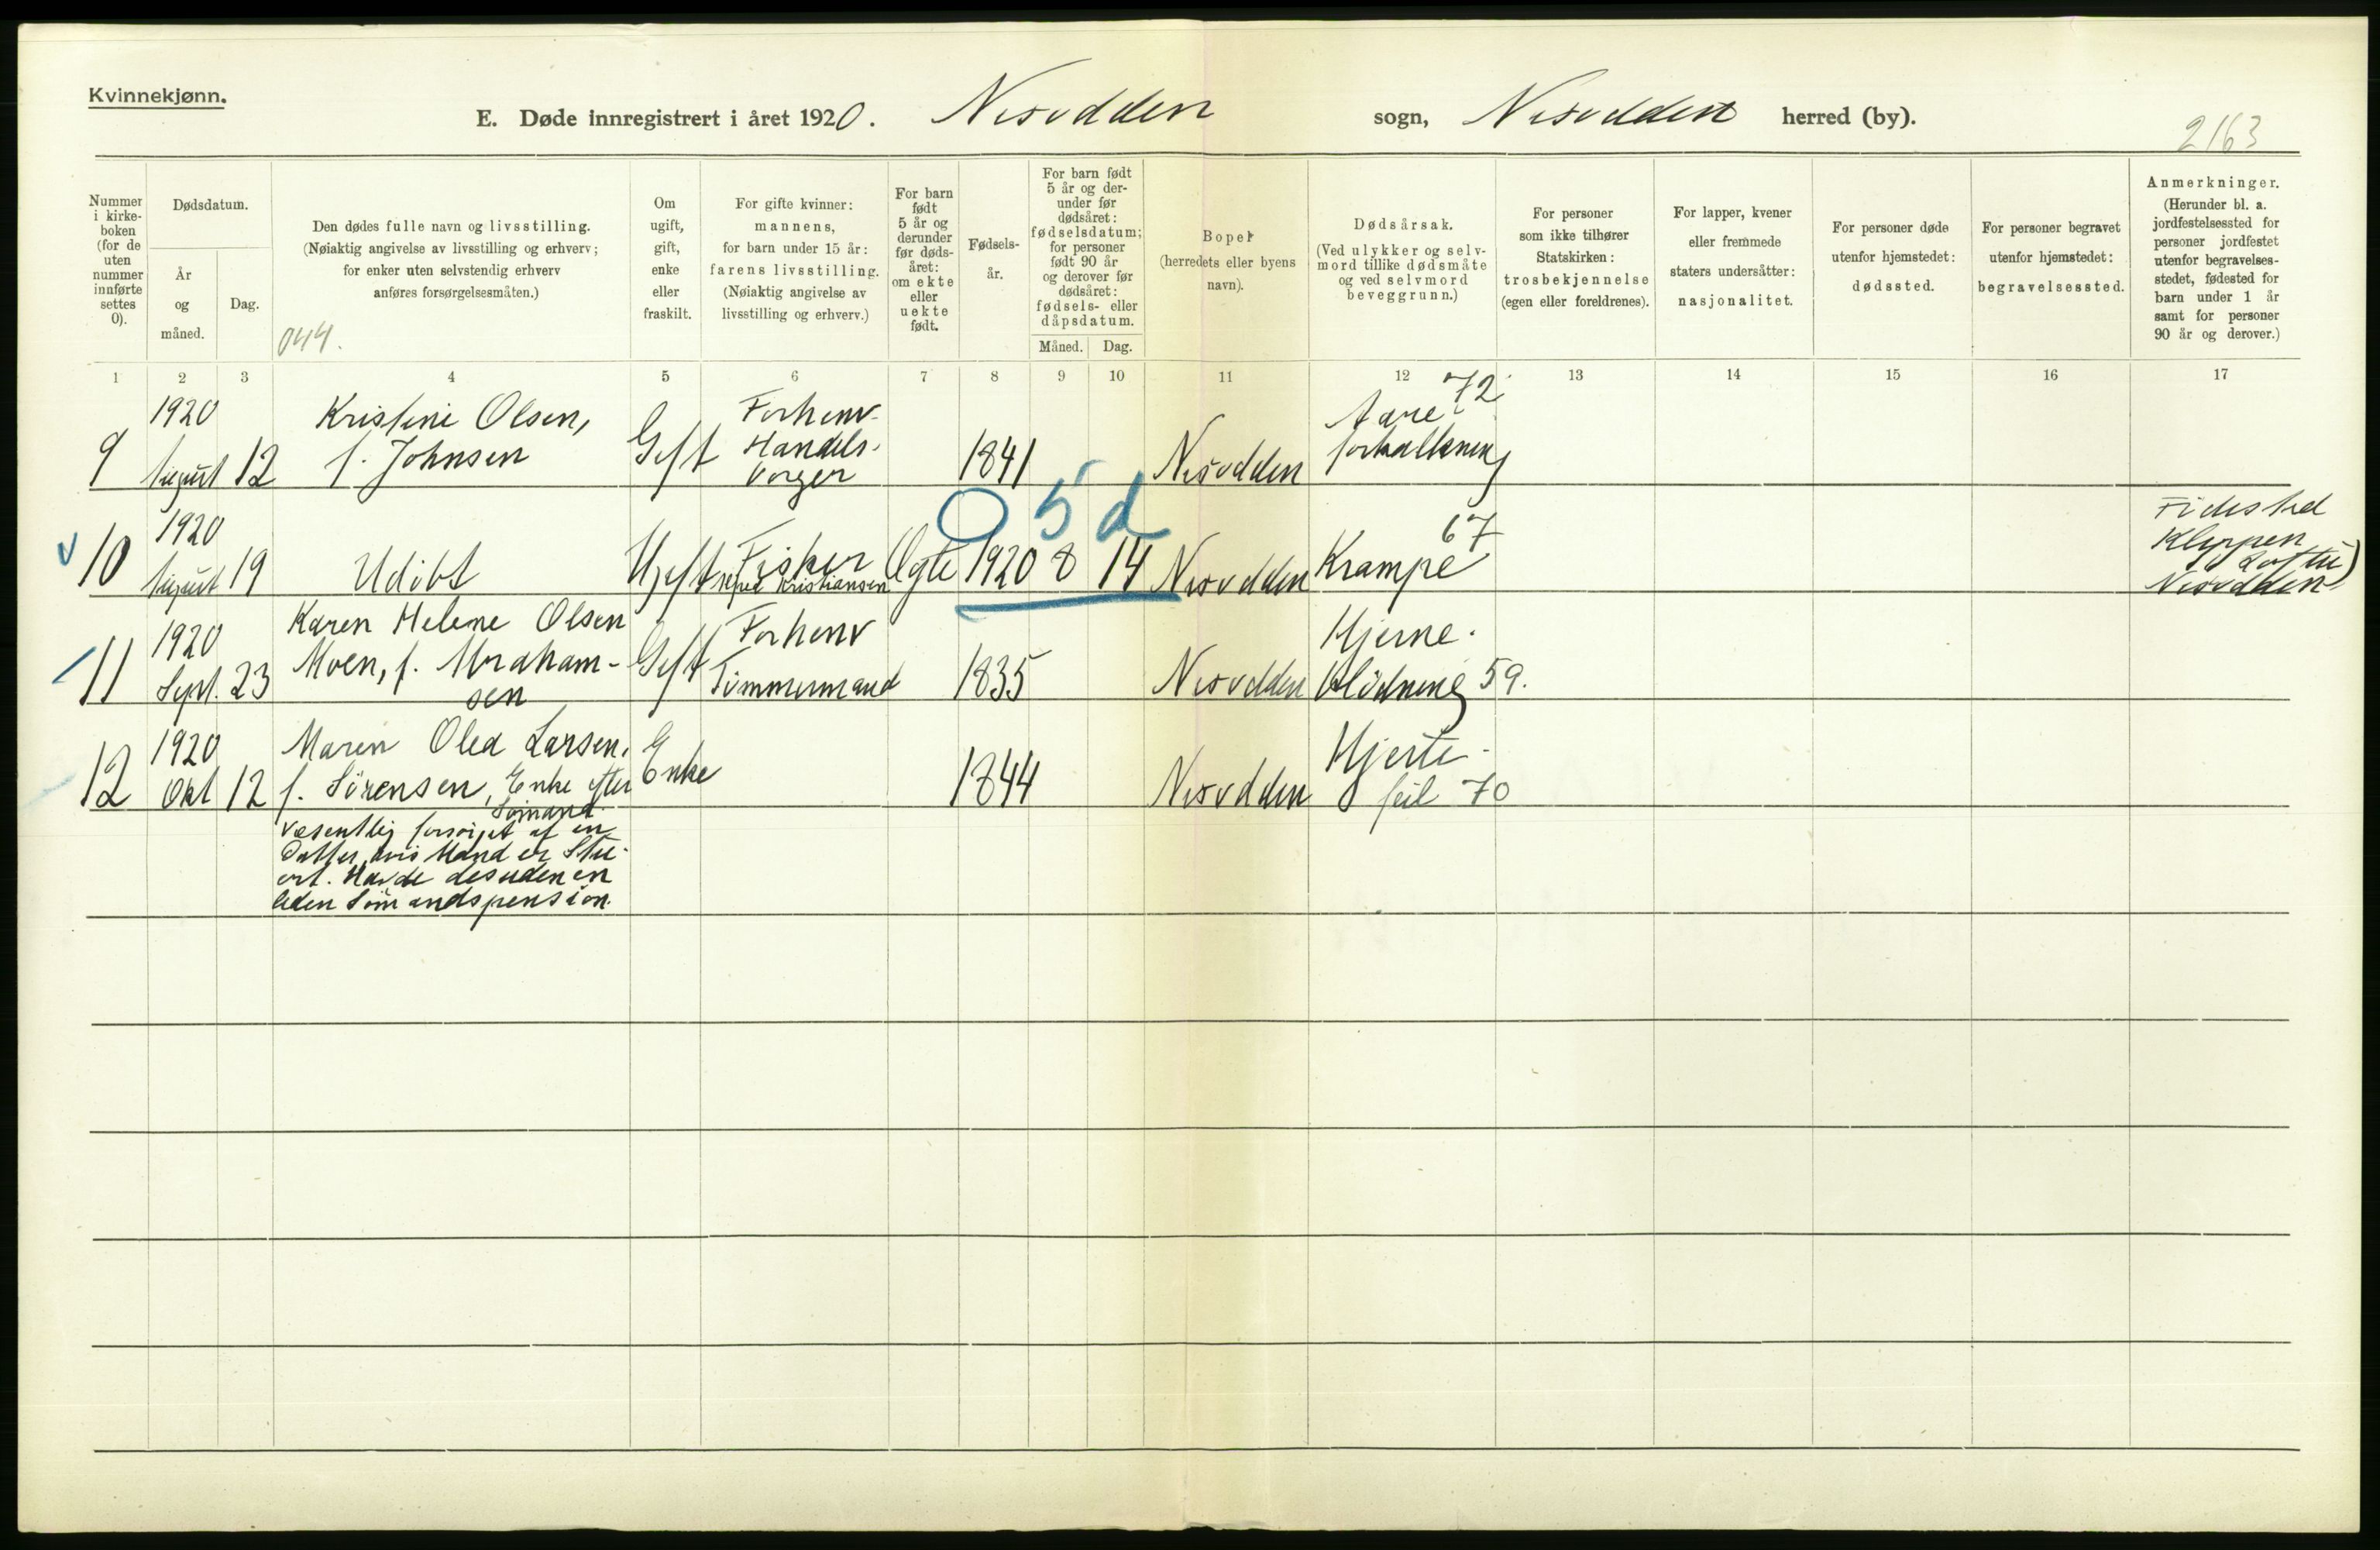 Kvinnekjønn.
E. Døde innregistrert i året 1920. Nesodden sogn, Nesodden herred (by).
2163
Nummer i kirke-boken (for de uten nummer innførte settes 0).
Dødsdatum.
År og måned.
Dag.
Den dødes fulle navn og livsstilling.
(Nøiaktig angivelse av livsstilling og erhverv;
for enker uten selvstendig erhverv
anføres forsørgelsesmåten.)
044.
Om ugift, gift, enke eller fraskilt.
For gifte kvinner:
mannens,
for barn under 15 år:
farens livsstilling.
(Nøiaktig angivelse av
livsstilling og erhverv.)
For barn født 5 år og derunder før døds-året: om ekte eller uekte født.
Fødsels-år.
For barn født 5 år og der-under før dødsåret: fødselsdatum; for personer født 90 år og derover før dødsåret: fødsels- eller dåpsdatum.
Måned.
Dag.
Bopel
(herredets eller byens
navn).
Dødsårsak.
(Ved ulykker og selv-
mord tillike dødsmåte
og ved selvmord
beveggrunn.)
For personer
som ikke tilhører
Statskirken:
trosbekjennelse
(egen eller foreldrenes).
For lapper, kvener
eller fremmede
staters undersåtter:
nasjonalitet.
For personer døde
utenfor hjemstedet:
dødssted.
For personer begravet
utenfor hjemstedet:
begravelsessted.
Anmerkninger.
(Herunder bl. a.
jordfestelsessted for
personer jordfestet
utenfor begravelses-
stedet, fødested for
barn under 1 år
samt for personer
90 år og derover.)
1 2 3 4 5 6 7 8 9 10 11 12 13 14 15 16 17
9
1920
August 12
Kristine Olsen,
f. Johnsen
Gift
Forhenv.
Handels-
borger
1841
Nesodden
72
Aare-
forkalkning
0 5 d
10
1920
August 19
Udöbt
Ugift
Fisker
Kristiansen
Ægte
1920 8 14
Nesodden
67
Krampe
Födested
Klyppen
Nesodden
11
1920
Sept. 23
Karen Helene Olsen
Moen, f. Abraham-
sen
Gift
Forhenv
Tömmermand
1835
Nesodden
Hjerne-
blödning 59.
12
1920
Okt 12
Maren Olea Larsen,
f. Sörensen, Enke efter
Sömand
Væsentlig forsörget af en
Datter, hvis Mand er Stu-
ert. Havde desuden en
liden Sömandspension.
Enke
1844
Nesodden
Hjerte-
feil 70